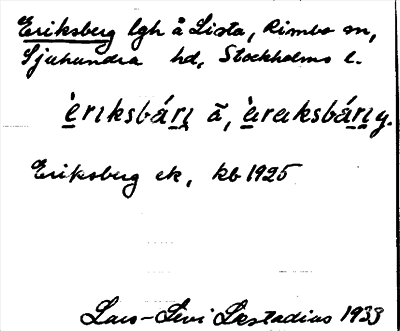 Eriksberg lgh å Lista, Rimbo sn,
Sjuhundra hd, Stockholms l.
èrıksbárı ā, àrəksbárı y.
Eriksberg ek, kb 1925
Lars-Levi Læstadius 1933